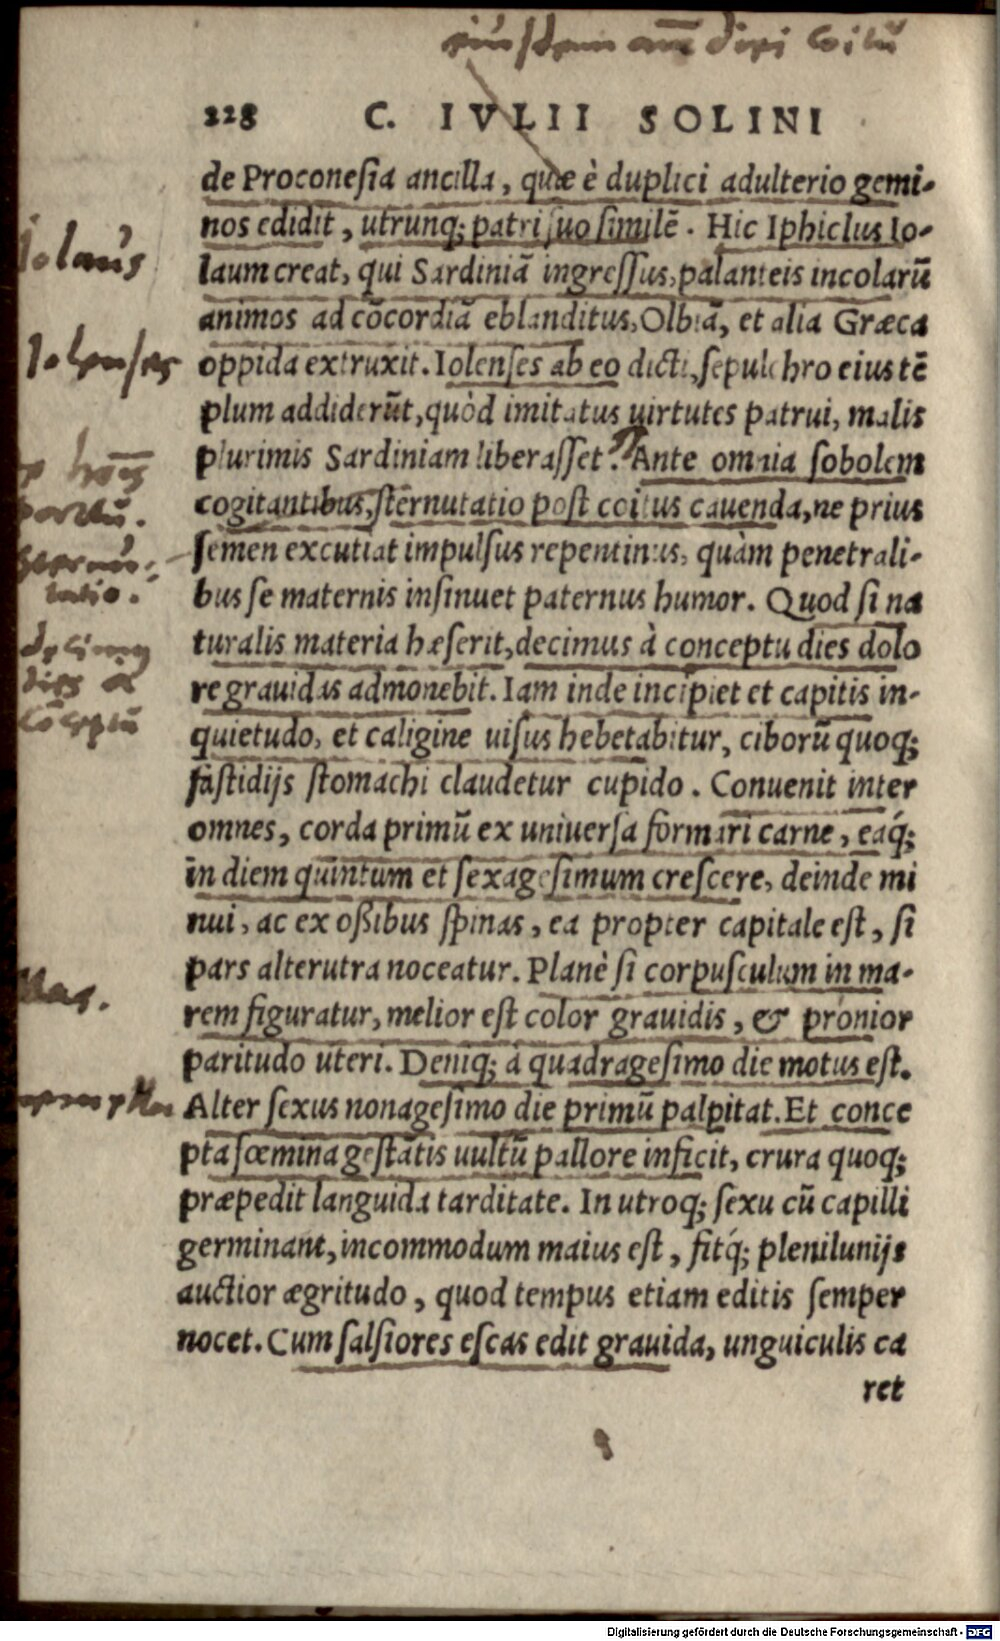 228 C. IVLII SOLINI
de Proconeſia ancilla, quæ è duplici adulterio gemi-
nos edidit, utrunq; patri ſuo ſimilē. Hic Iphiclus Io-
laum creat, qui Sardiniā ingreſſus, palanteis incolarū
animos ad cōcordiā eblanditus, Olbiā, et alia Græca
oppida extruxit. Iolenſes ab eo dicti, ſepulchro eius tē
plum addiderūt, quòd imitatus uirtutes patrui, malis
plurimis Sardiniam liberaſſet. Ante omnia ſobolem
cogitantibus, ſternutatio poſt coitus cauenda, ne prius
ſemen excutiat impulſus repentinus, quàm penetrali-
bus ſe maternis inſinuet paternus humor. Quod ſi na
turalis materia hæſerit, decimus à conceptu dies dolo
re grauidas admonebit. Iam inde incipiet et capitis in-
quietudo, et caligine uiſus hebetabitur, ciborū quoq;
faſtidijs ſtomachi claudetur cupido. Conuenit inter
omnes, corda primū ex uniuerſa formari carne, eaq́;
in diem quintum et ſexageſimum creſcere, deinde mi
nui, ac ex oßibus ſpinas, ea propter capitale eſt, ſi
pars alterutra noceatur. Planè ſi corpuſculum in ma-
rem figuratur, melior eſt color grauidis, & pronior
paritudo uteri. Deniq; à quadrageſimo die motus eſt.
Alter ſexus nonageſimo die primū palpitat. Et conce
pta fœmina geſtātis uultū pallore inficit, crura quoq;
præpedit languida tarditate. In utroq; ſexu cū capilli
germinant, incommodum maius eſt, fitq́; plenilunijs
auctior ægritudo, quod tempus etiam editis ſemper
nocet. Cum ſalſiores eſcas edit grauida, unguiculis ca
ret
Iolaus
Iolenſes
partū.
sternu-
tatio.
decimus
dies à
cōceptu
Mas.
Digitalisierung gefördert durch die Deutsche Forschungsgemeinschaft - DFG